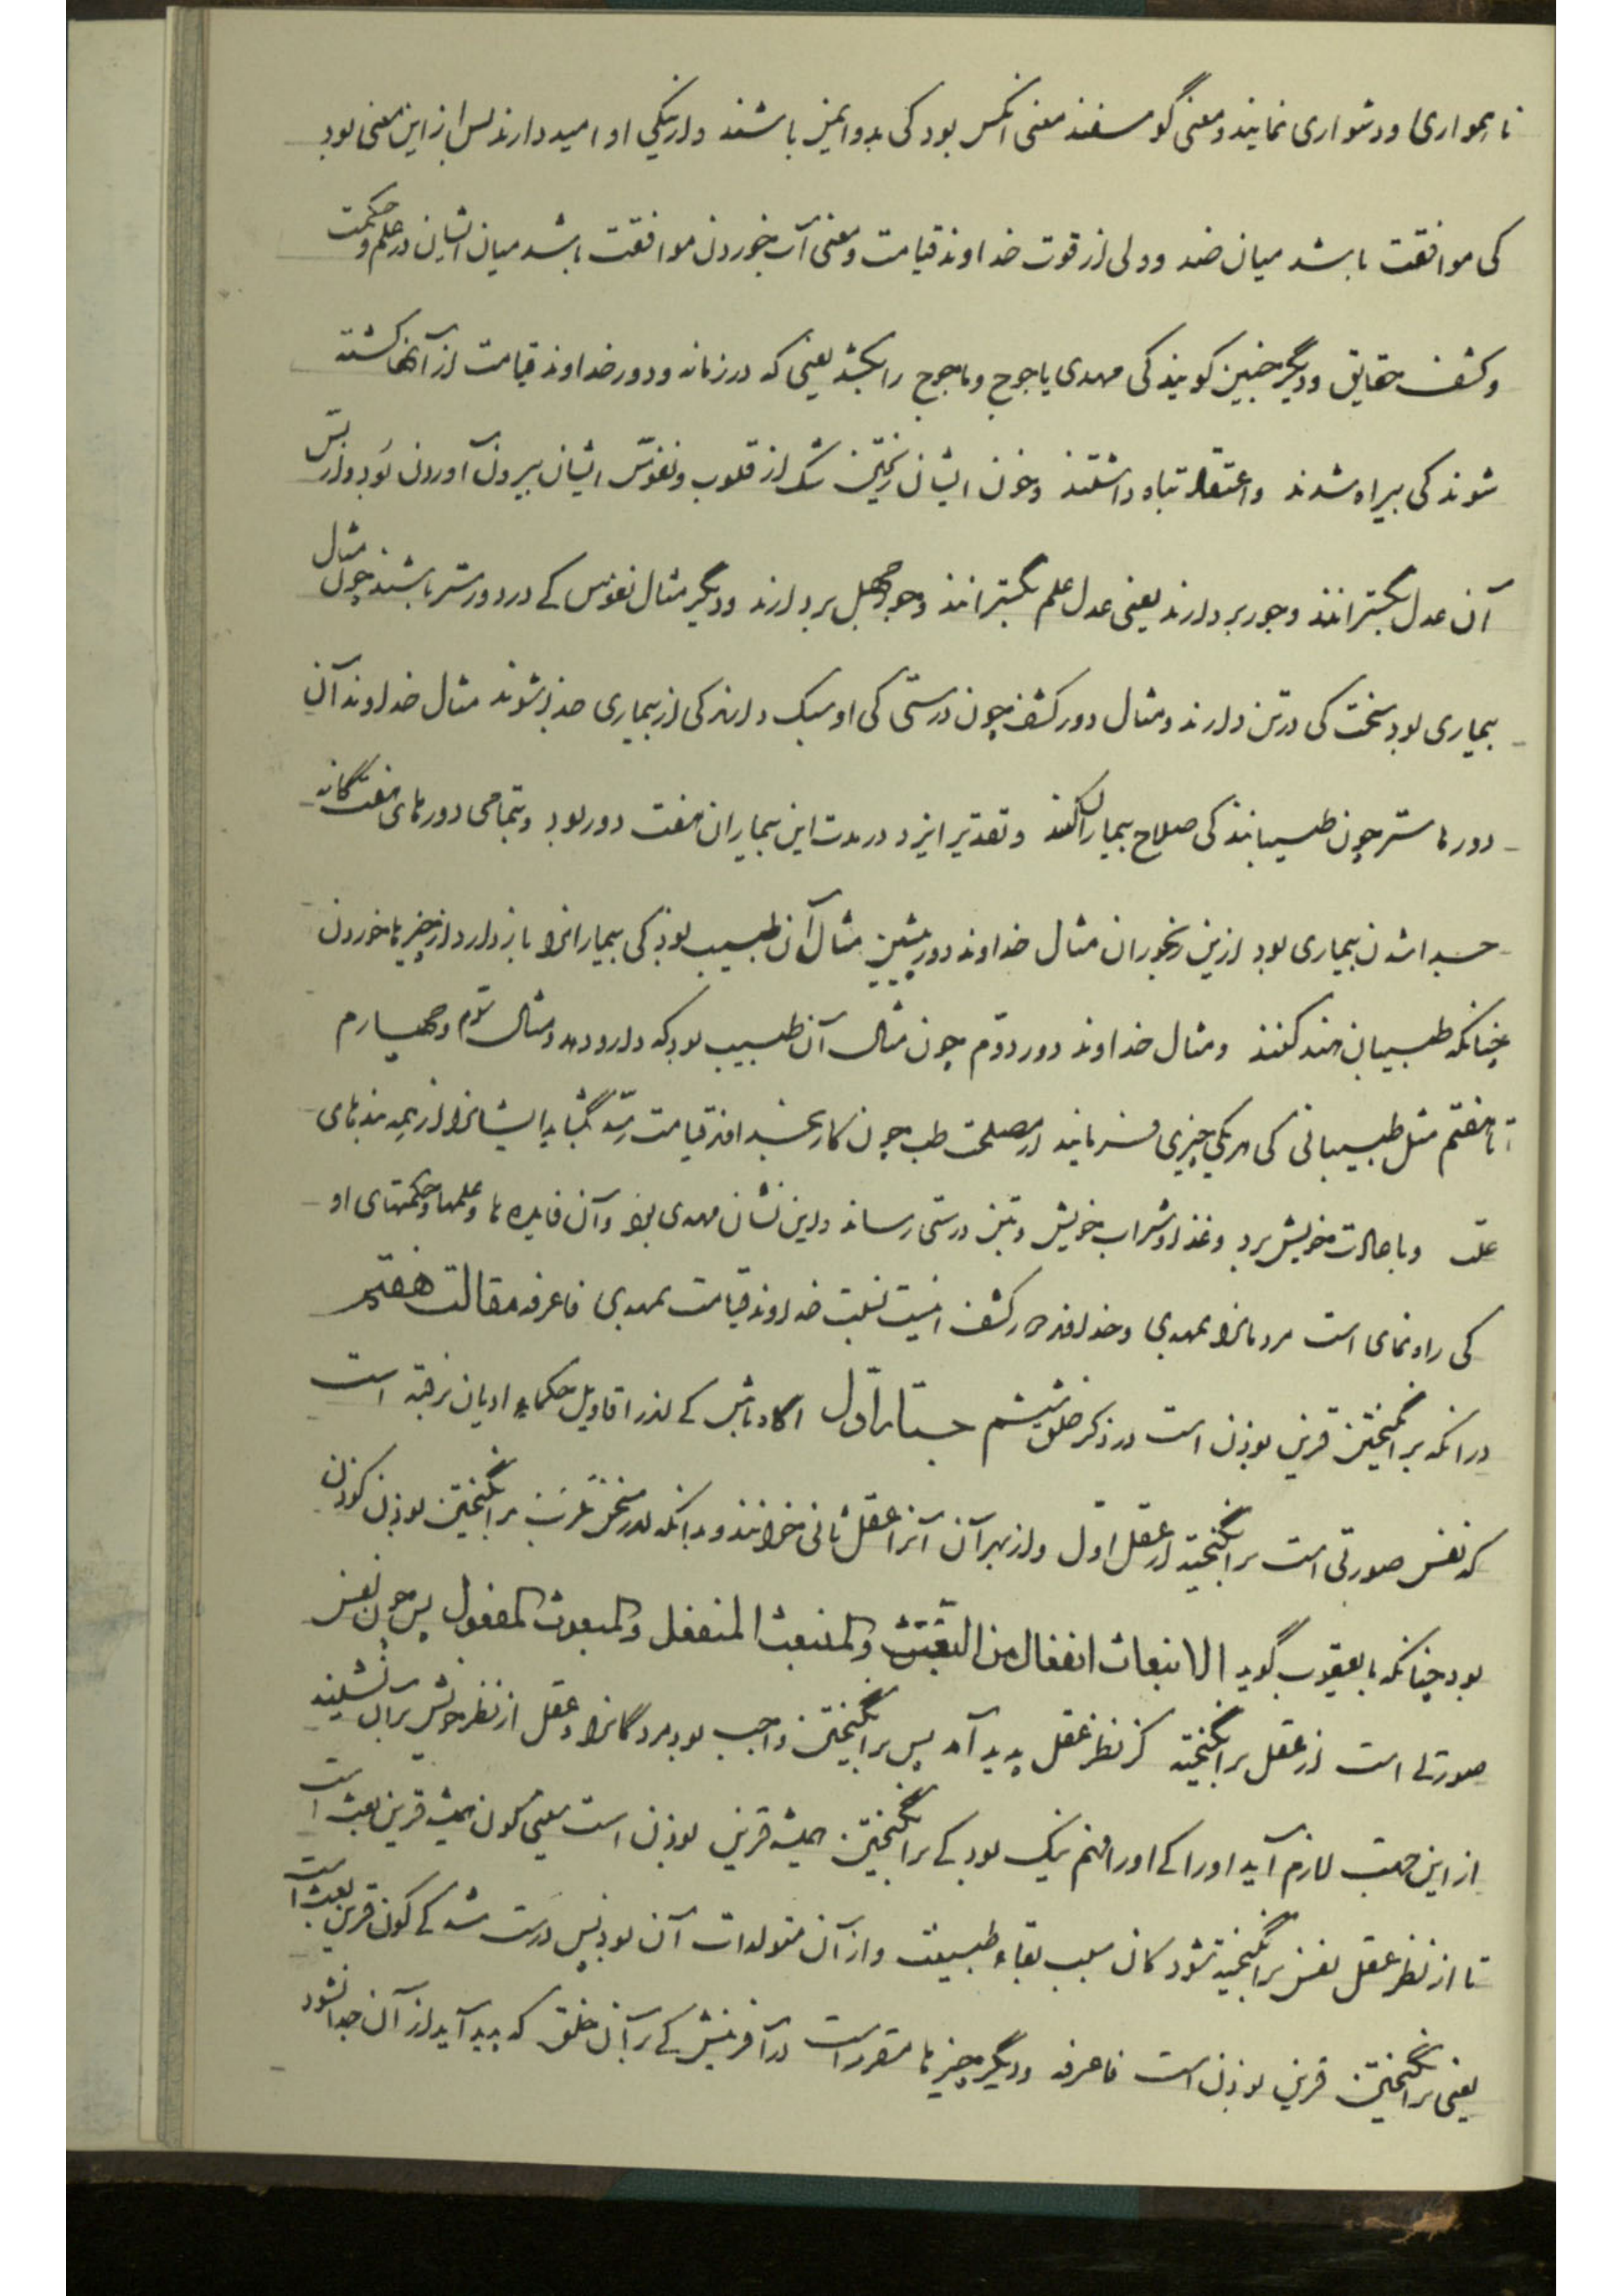 ناهمواری و دشواری نمایند و معنی گوسفند معنی آنکس بود کی بدو ایمن باشند و از نیکی او امید دارند پس از این معنی بود
کی موافقت باشد میان ضد و ولی از قوت خداوند قیامت و معنی آب خوردن موافقت باشد میان ایشان در علم و حکمت
و کشف حقایق و دیگر چنین کویند کی مهدی یاجوج و ماجوج را بکشد یعنی که در زمانه و دور خداوند قیامت از آنها کشته
شوند کی بیراه شدند و اعتقاد تباه داشتند و خون ایشان ریختن شک از قلوب و نفوس ایشان بیرون آوردن بود و از پس
آن عدل بگسترانند و جور بردارند یعنی عدل علم بگسترانند و جور جهل بردارند و دیگر مثال نفوس کے در دور ستر باشند چون مثال
بیماری بود سخت کی در تن دارند و مثال دور کشف چون درستی کی او سبک دارند کی از بیماری جدا شوند مثال خداوند آن
دورها ستر چون طبیبانند کی صلاح بیماران کنند و تقدیر ایزد در مدت این بیماران هفت دور بود و بتمامی دورهای هفتگانه
جدا شدن بیماری بود ازین رنجوران مثال خداوند دور پیشین مثال آن طبیب بود کی بیمارانرا باز دارد از چیزها خوردن
چنانکه طبیبان هند کنند و مثال خداوند دور دوم چون مثال آن طبیب بود که دارو دهد و مثال سوم و چهارم
تا هفتم مثل طبیبانی کی هر یکی چیزی فرمایند از مصلحت طب چون کار بخداوند قیامت رسد بگشاید ایشانرا از همه بندهای
علت و با حالت خویش برد و غذا و شراب خویش و بتن درستی رساند و این نشان مهدی بود و آن فایده ها و علمها و حکمتهای او
کی راه نمای است مردمانرا بمهدی و خداوند دور کشف اینست نسبت خداوند قیامت بمهدی فاعرفه مقالت هفتم
در آنکه برانگیختن قرین بوذن است در ذکر خلق ششم جستار اول اگاه باش کے اندر اقاویل حکماء ادیان نرفته است
که نفس صورتی است برانگیخته از عقل اول و از بهر آن آنرا عقل ثانی خوانند و بدانکه اندر سخن عرب برانگیختن بوذن کوذن
بود چنانکه بایعقوب گوید الانبعاث انفعال من البعث والمنبعث المنفعل والمبعوث المفعول پس چون نفس
صورتے است از عقل برانگیخته کز نظر عقل پدید آمد پس برانگیختن واجب بود مردگانرا و عقل از نظر خویش بران ننشیند
از این جهت لازم آید او را کے او را فهم نیک بود کے برانگیختن همیشه قرین بوذن است معنی کون همیشه قرین بعث است
تا از نظر عقل نفس برانگیخته نشود کان سبب بقاء طبیعت و از آن متولدات آن بود پس درست شد کے کون قرین بعث است
یعنی برانگیختن قرین بوذن است فاعرفه و دیگر چیزها مقرر است در آفرینش کے بر آن خلق که پدید آید از آن جدا نشود